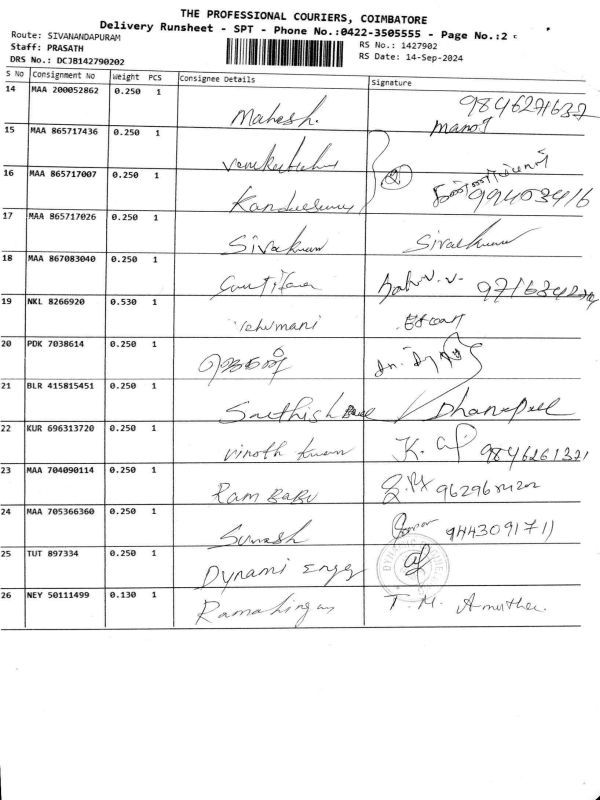 THE PROFESSIONAL COURIERS, COIMBATORE
Delivery Runsheet - SPT - Phone No.:0422-3505555 - Page No.:2
Route: SIVANANDAPURAM
Staff: PRASATH
RS No.: 1427902
DRS No.: DCJB142790202
RS Date: 14-Sep-2024
S No Consignment No Weight PCS Consignee Details Signature
14 MAA 200052862 0.250 1 Mahesh. 9846271637
Manoj
15 MAA 865717436 0.250 1
16 MAA 865717007 0.250 1 2
17 MAA 865717026 0.250 1 Sivakumar Sivakumar
18 MAA 867083040 0.250 1
19 NKL 8266920 0.530 1 Velumani
20 PDK 7038614 0.250 1
21 BLR 415815451 0.250 1 Sathish Dhanapal
22 KUR 696313720 0.250 1 Vinoth Kumar K. 9846261321
23 MAA 704090114 0.250 1 Ram Babu
24 MAA 705366360 0.250 1 Suresh 9443091711
25 TUT 897334 0.250 1 Dynami Engg
26 NEY 50111499 0.130 1 Ramalingam T. M. Amutha.